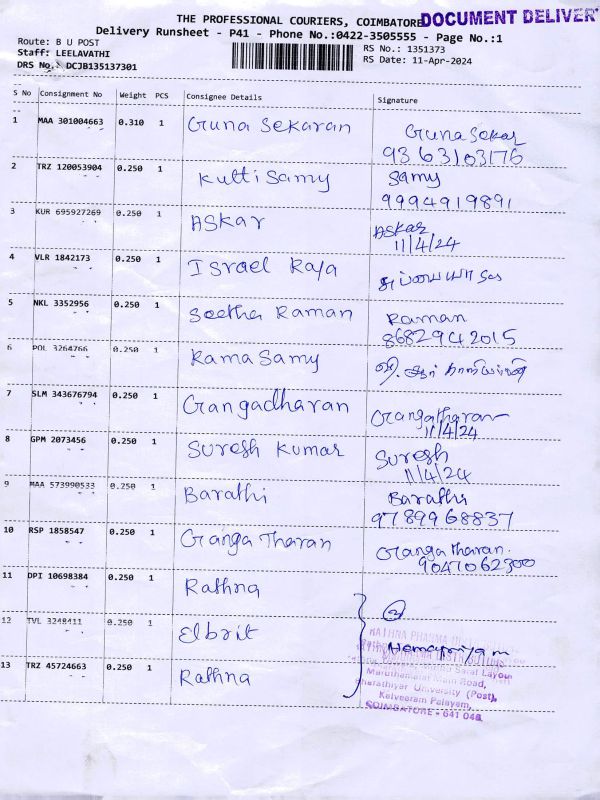 THE PROFESSIONAL COURIERS, COIMBATORE
DOCUMENT DELIVER
Delivery Runsheet - P41 - Phone No.:0422-3505555 - Page No.:1
Route: B U POST
Staff: LEELAVATHI
DRS No.: DCJB135137301
RS No.: 1351373
RS Date: 11-Apr-2024
S No Consignment No Weight PCS Consignee Details Signature
1 MAA 301004663 0.310 1 Guna Sekaran Guna Sekar
9363103176
2 TRZ 120053904 0.250 1 Kutti Samy Samy
9994919891
3 KUR 695927269 0.250 1 Askar Askar
11/4/24
4 VLR 1842173 0.250 1 Israel Raja
5 NKL 3352956 0.250 1 Seetha Raman Raman
8682942015
6 POL 3264766 0.250 1 Rama Samy
7 SLM 343676794 0.250 1 Gangadharan Gangatharan
11/4/24
8 GPM 2073456 0.250 1 Suresh Kumar Suresh
11/4/24
9 MAA 573990533 0.250 1 Barathi Barathi
9789968837
10 RSP 1858547 0.250 1 Ganga Tharan Ganga tharan.
9047062300
11 DPI 10698384 0.250 1 Rathna
12 TVL 3248411 0.250 1 Elbrit
RATHNA PHARMA
Hemapriya m
13 TRZ 45724663 0.250 1 Rathna
Layout
Maruthamalai Main Road,
Bharathiyar University (Post),
Kalveeram Palayam,
COIMBATORE - 641 046.